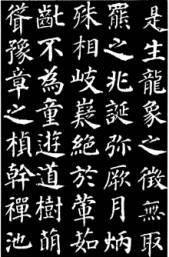 是生龍象之徵無取
羆之兆誕弥厥月炳
殊相岐嶷絕於葷茹
齓不為童遊道樹萌
聳豫章之楨幹禪池